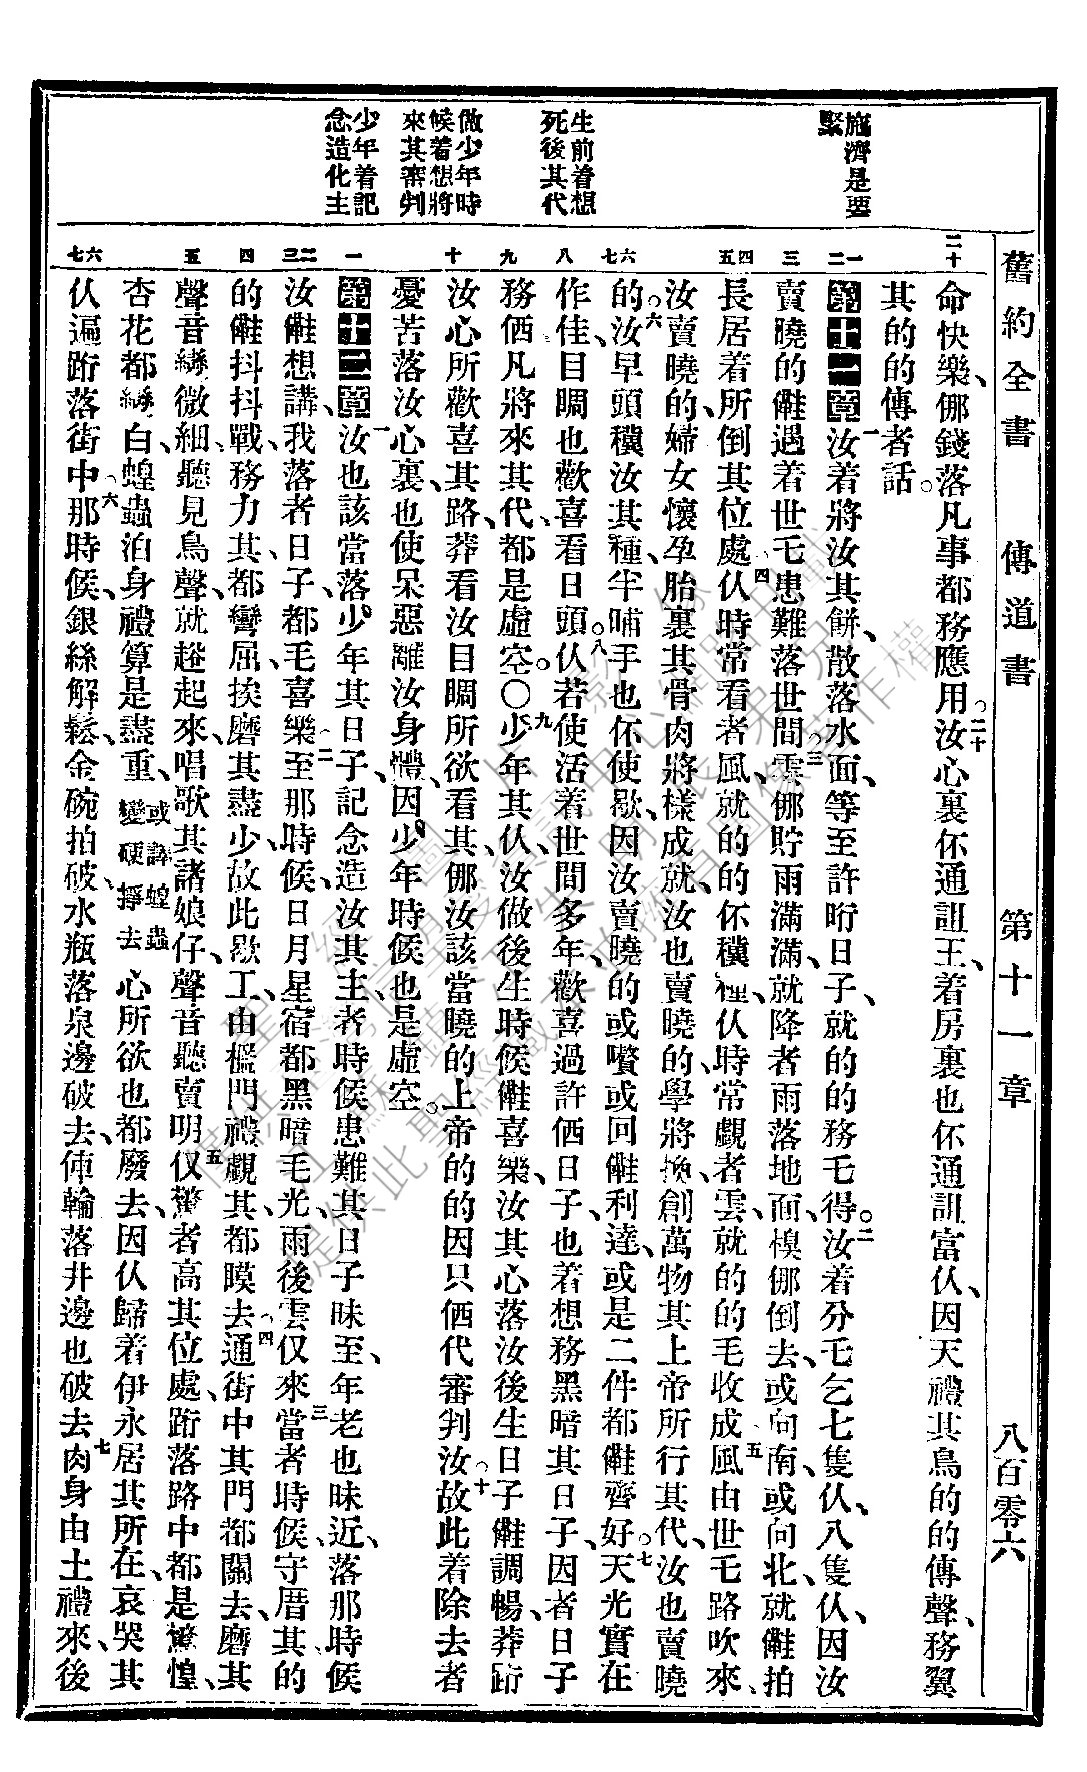 舊約全書 傳道書 第十一章 八百零六
施濟是要
緊
生前着想
死後其代
做少年時
候着想將
來其審判
少年着記
念造化主
二十 一二 三 四五 六七 八 九 十 一 二三 四 五 六七
命快樂、㑚錢落凡事都務應用。二十汝心裏伓通詛王、着房裏也伓通詛富仈、因天禮其鳥的的傳聲、務翼
其的的傳者話。
第十一章一汝着將汝其餅、散落水面、等至許昑日子、就的的務乇得。二汝着分乇乞七隻仈、八隻仈、因汝
賣曉的儺遇着世乇患難落世間。三雲㑚貯雨滿滿、就降者雨落地面、樉㑚倒去、或向南、或向北、就儺拍
長居着所倒其位處。四仈時常看者風、就的的伓穬種、仈時常覷者雲、就的的毛收成。五風由世乇路吹來、
汝賣曉的、婦女懷孕胎裏其骨肉將樣成就、汝也賣曉的、學將換創萬物其上帝所行其代、汝也賣曉
的。六汝早頭穬汝其種、半晡手也伓使歇、因汝賣曉的或嚽或回儺利達、或是二件都儺齊好。七天光實在
作佳、目睭也歡喜看日頭。八仈若使活着世間多年、歡喜過許伵日子、也着想務黑暗其日子、因者日子
務伵、凡將來其代、都是虛空。〇九少年其仈、汝做後生時候儺喜樂、汝其心落汝後生日子儺調暢、莽跕
汝心所歡喜其路、莽看汝目睭所欲看其、㑚汝該當曉的上帝的的因只伵代審判汝。十故此着除去者
憂苦落汝心裏、也使呆惡離汝身體、因少年時候也是虛空。
第十二章一汝也該當落少年其日子、記念造汝其主、者時候患難其日子昧至、年老也昧近、落那時候
汝儺想講、我落者日子都毛喜樂。二至那時候、日月星宿都黑暗毛光、雨後雲仅來。三當者時候、守厝其的
的儺抖抖戰、務力其都彎屈、挨磨其盡少、故此歇工、由檻門禮覷其都瞙去。四通街中其門都關去、磨其
聲音㜻微細、聽見鳥聲、就趖起來、唱歌其諸娘仔、聲音聽賣明。五仅驚者高其位處、跕落路中都是驚惶、
杏花都㜻白、蝗蟲泊身禮算是盡重、或譯蝗蟲變硬掙去心所欲也都廢去、因仈歸着伊永居其所在、哀哭其
仈遍跕落街中。六那時候、銀絲解鬆、金碗拍破、水瓶落泉邊破去、俥輪落井邊也破去。七肉身由土禮來、後